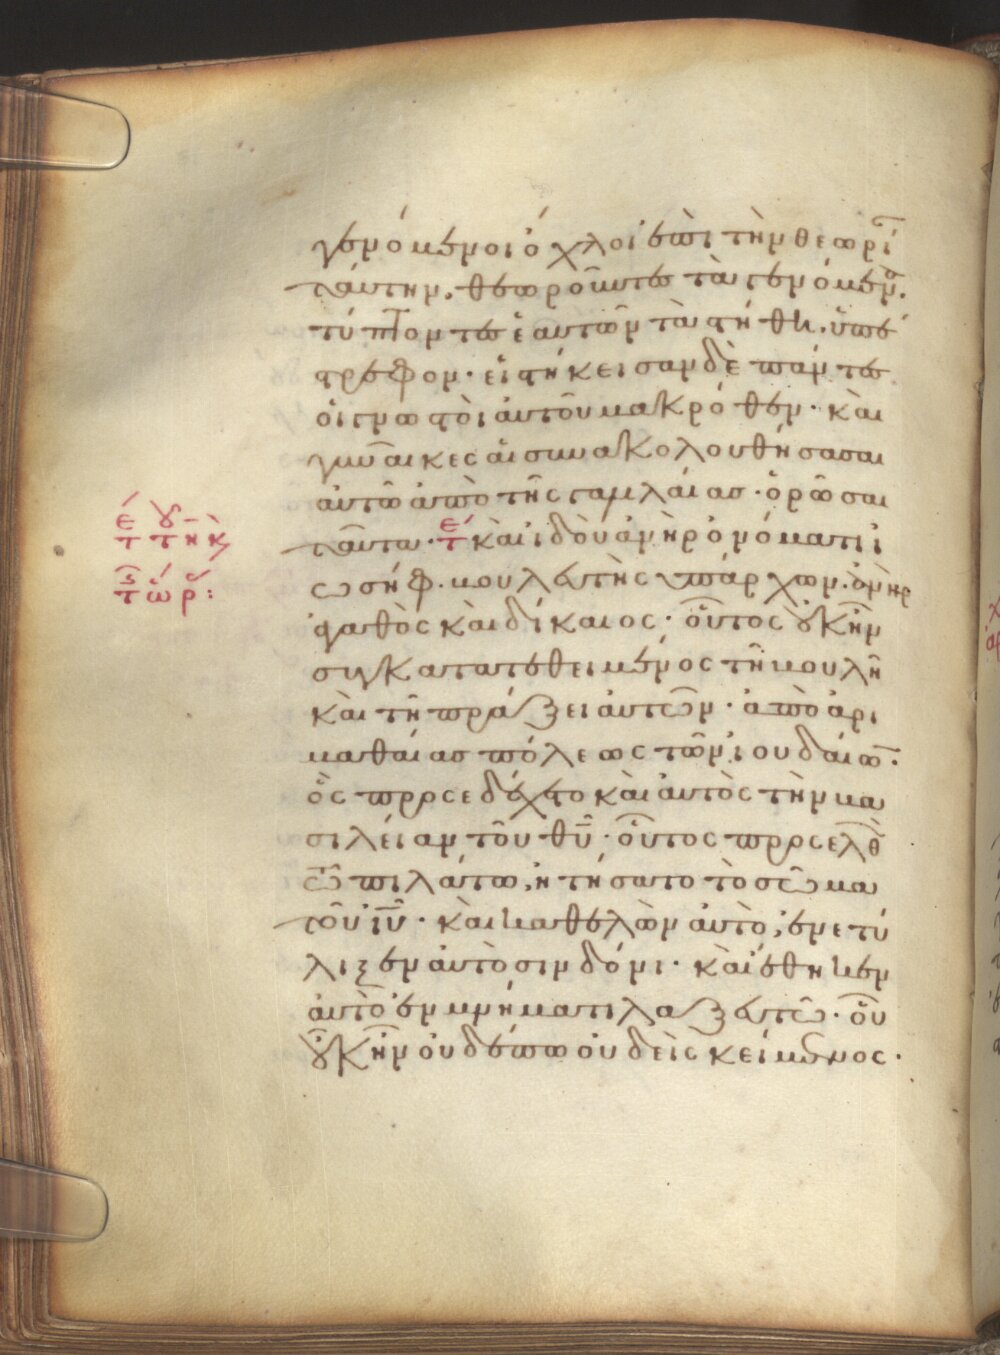 γενόμενοι ὄχλοι ἐπὶ τὴν θεωρί
ταύτην. θεωροῦντες τὰ γενόμενα.
τύπτοντες ἑαυτῶν τὰ στήθη. ὑπέ
στρεφον. εἱστήκεισαν δὲ πάντες
οἱ γνωστοὶ αὐτοῦ μακρόθεν. καὶ
γυναῖκες αἱ συνακολουθήσασαι
αὐτῶ ἀπὸ τῆς γαλιλαίας. ὁρῶσαι
ταῦτα. καὶ ἰδοὺ ἀνὴρ ὀνόματι ἰ
ωσήφ. βουλευτὴς ὑπάρχων. ἀνὴρ
ἀγαθὸς καὶ δίκαιος. οὗτος οὐκ ἦν
συγκατατεθειμένος τῆ βουλῆ
καὶ τῆ πράξει αὐτῶν. ἀπὸ ἀρι
μαθαίας πόλεως τῶν ἰουδαίω.
ὃς προσεδέχετο καὶ αὐτὸς τὴν βα
σιλείαν τοῦ θυ. οὗτος προσελθ
ὼν πιλάτω, ἠτήσατο τὸ σῶμα
τοῦ ιυ. καὶ καθελὼν αὐτὸ, ἐνετύ
λιξεν αὐτὸ σινδόνι. καὶ ἔθηκεν
αὐτὸ ἐν μνήματι λαξευτῶ. οὗ
οὐκ ἦν οὐδέπω οὐδεὶς κείμενος.